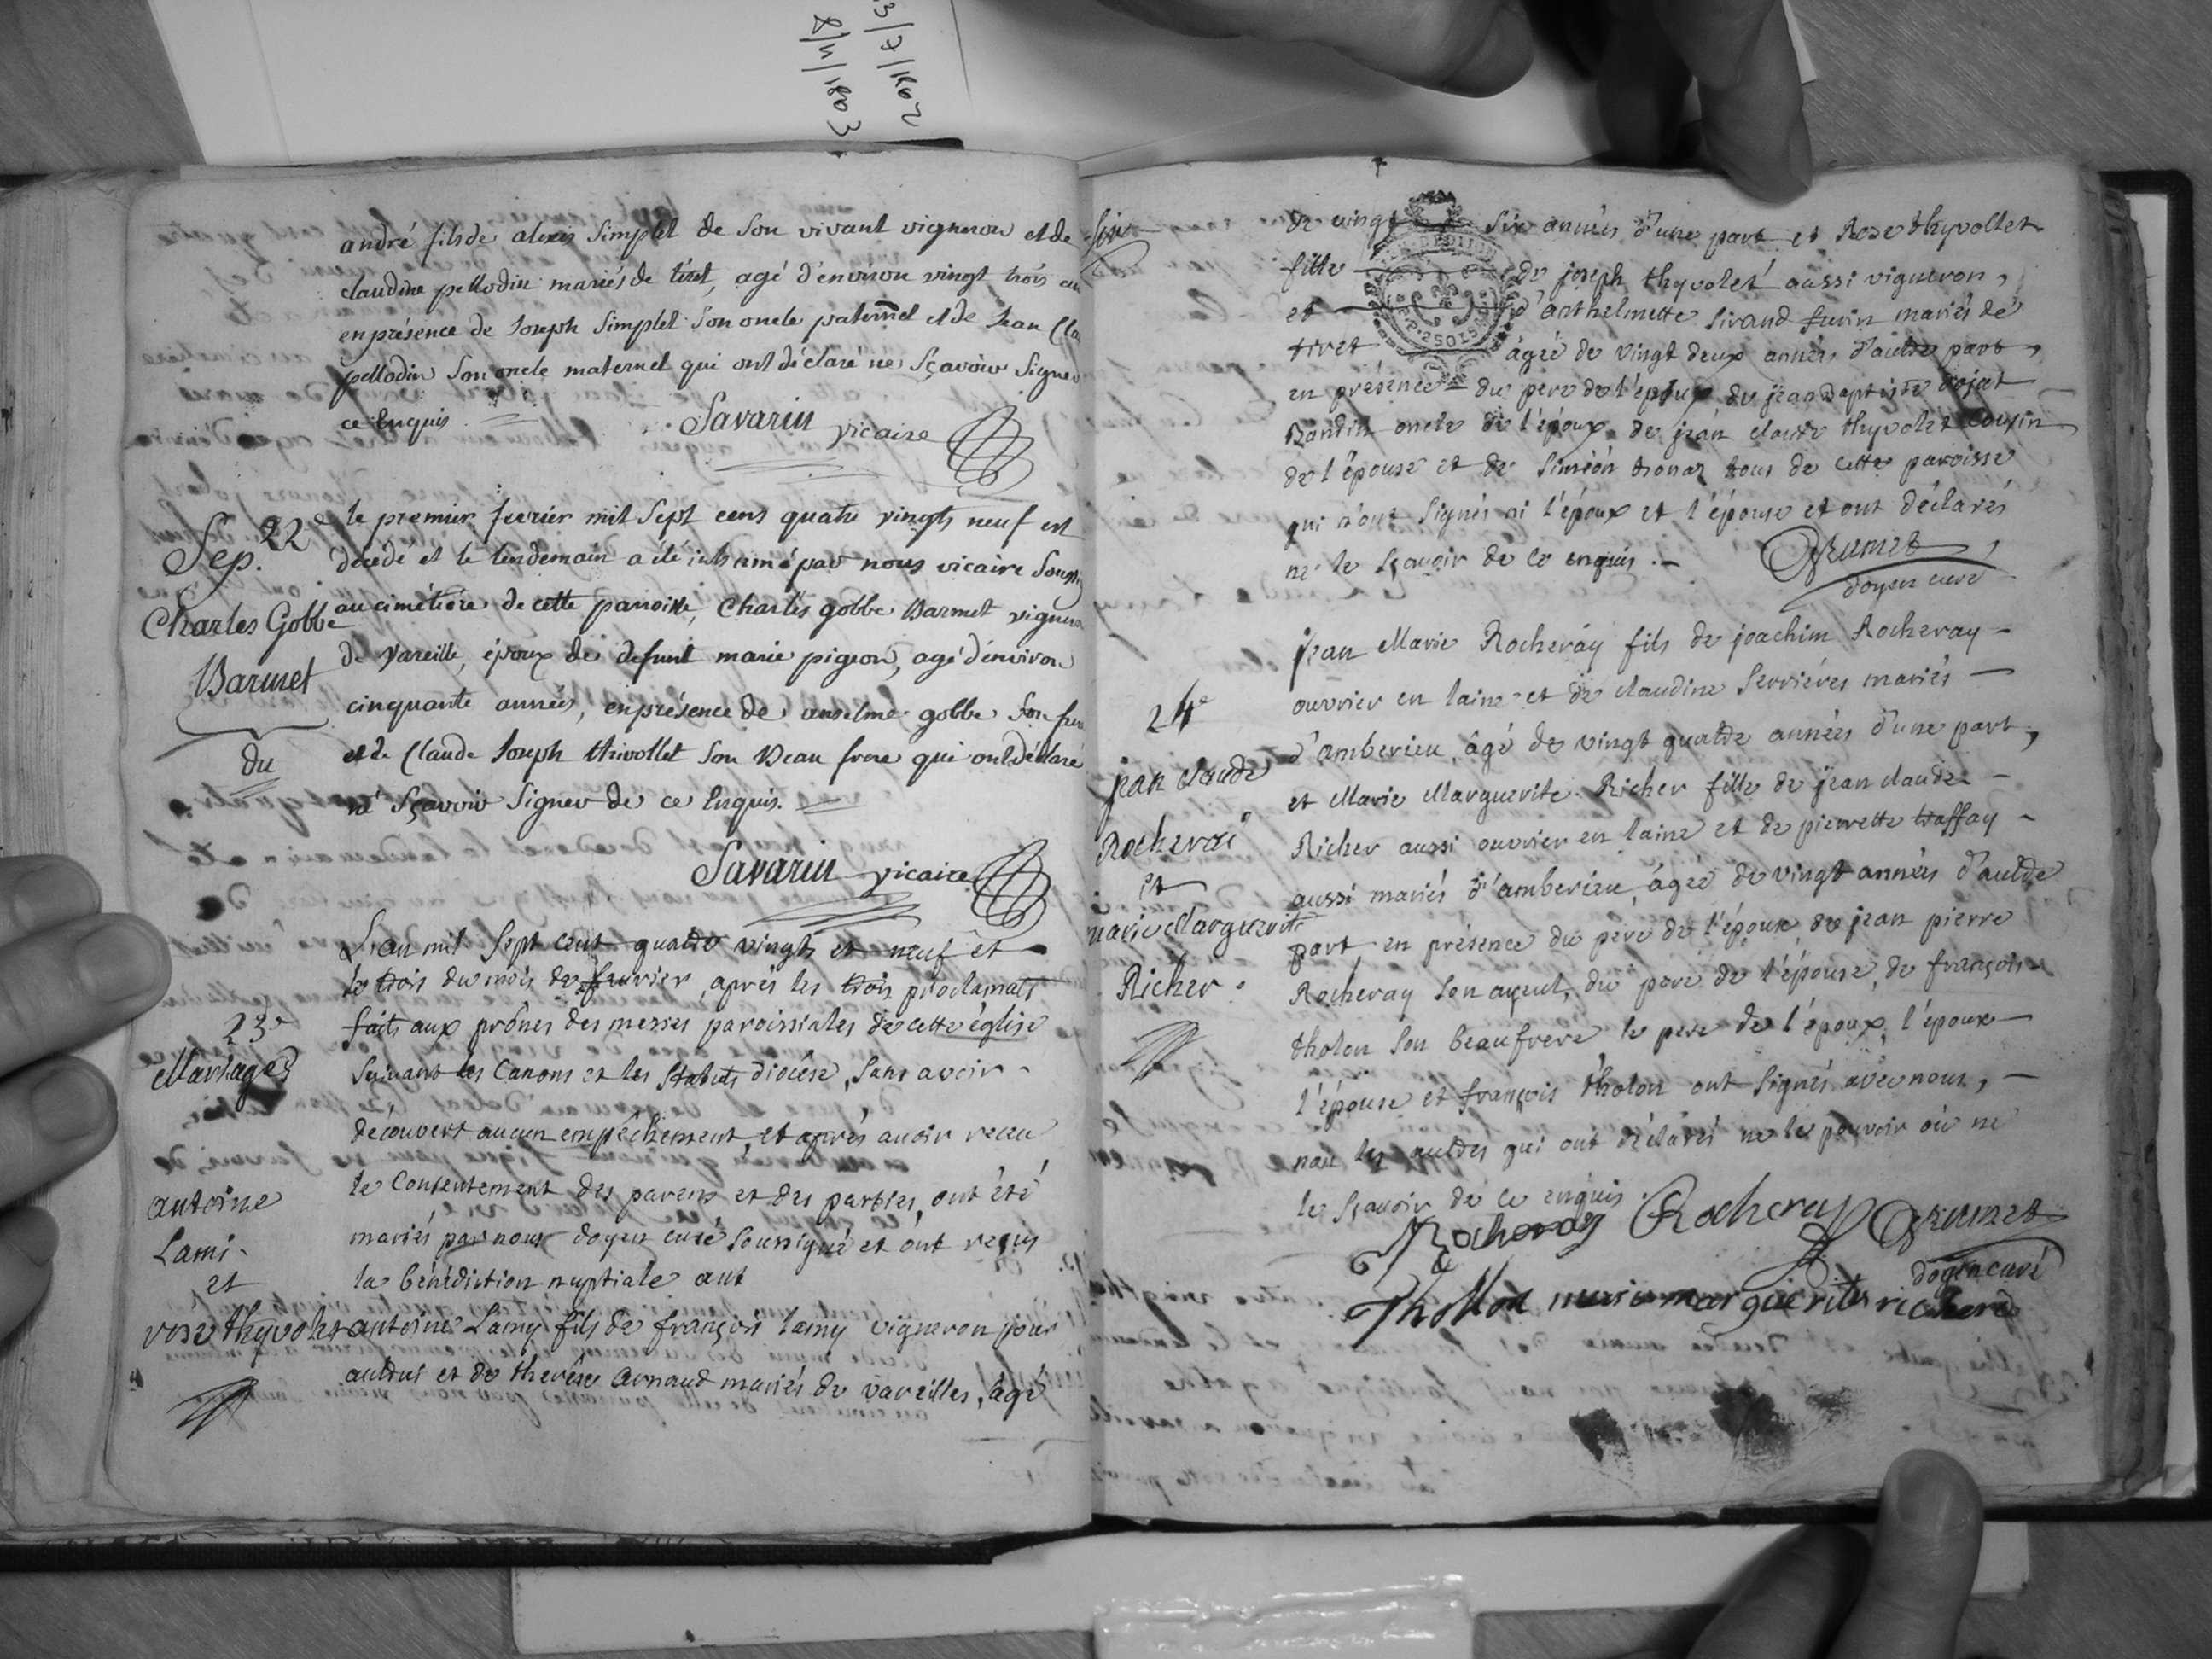 3/7/1802
8/11/1803
andré fils de alexis Simplet de son vivant vigneron et de
claudine pellodin mariés de tiret, agé d'environ vingt trois
en présence de Joseph Simplet son oncle paternel et de Jean
pellodin son oncle maternel qui ont déclaré ne Sçavoir Signer
ce Enquis
Savarin vicaire
22e
Sep.
Charles Gobbe
Barmet
du
le premier fevrier mil Sept cens quatre vingts neuf est
décédé et le lendemain a été inhumé par nous vicaire
au cimetière de cette paroisse, Charles gobbe Barmet
de Vareille, époux de defunt marie pigeon, agé d'environ
cinquante années, en présence de anselme gobbe Son
et de Claude Joseph thivollet Son Beau frere qui ont déclaré
né Sçavoir Signer de ce Enquis.
Savarin vicaire
23e
Mariages
antoine
Lami
et
rose thyvolet
L'an mil Sept cent quatre vingts et neuf et
le trois du mois de fevrier, après les trois proclamats
faits aux prônes des messes paroissiales de cette église
Suivant les Canons et les Statuts diocése, Sans avoir
découvert aucun empéchement, et après avoir receu
le Consentement des parens et des parties, ont été
mariés par nous doyen curé Soussigné et ont reçus
la bénédiction nuptiale
antoine Lamy fils de françois lamy vigneron pour
auldui et de therése arnaud mariés de vareilles, âgé
de vingt Six années d'une part et Rose thyvollet
fille de joseph thyvolet aussi vigneron,
et d'anthelmette Sirand mariés de
tiret âgée de vingt deux années d'autre part,
en présence du père de l'époux de jean Baptiste
oncle de l'époux, de jean claude thyvolet Cousin
de l'épouse et de Siméon tous de cette paroisse
qui n'ont Signés ni l'époux et l'épouse et ont déclarés
ne le Sçavoir de ce enquis.
doyen curé
24e
jean claude
Rocherai
et
marie Marguerite
Richer
jean Marie Rocheray fils de joachim Rocheray
ouvrier en laine et de claudine Serrières mariés
d'amberieu, âgé de vingt quatre années d'une part,
et Marie Marguerite Richer fille de jean claude
Richer aussi ouvrier en laine et de pierrette traffay
aussi mariés d'amberieu, âgée de vingt années d'autre
part, en présence du père de l'époux, de jean pierre
Rocheray Son ayeul, du père de l'épouse, de françois
tholon Son beaufrere le pere de l'époux, l'époux
l'épouse et françois tholon ont Signés avec nous,
non les autres qui ont déclarés ne le pouvoir où ne
le Sçavoir de ce enquis.
Rocheray Rocheray
doyen curé
Thollon marie marguerite richerd